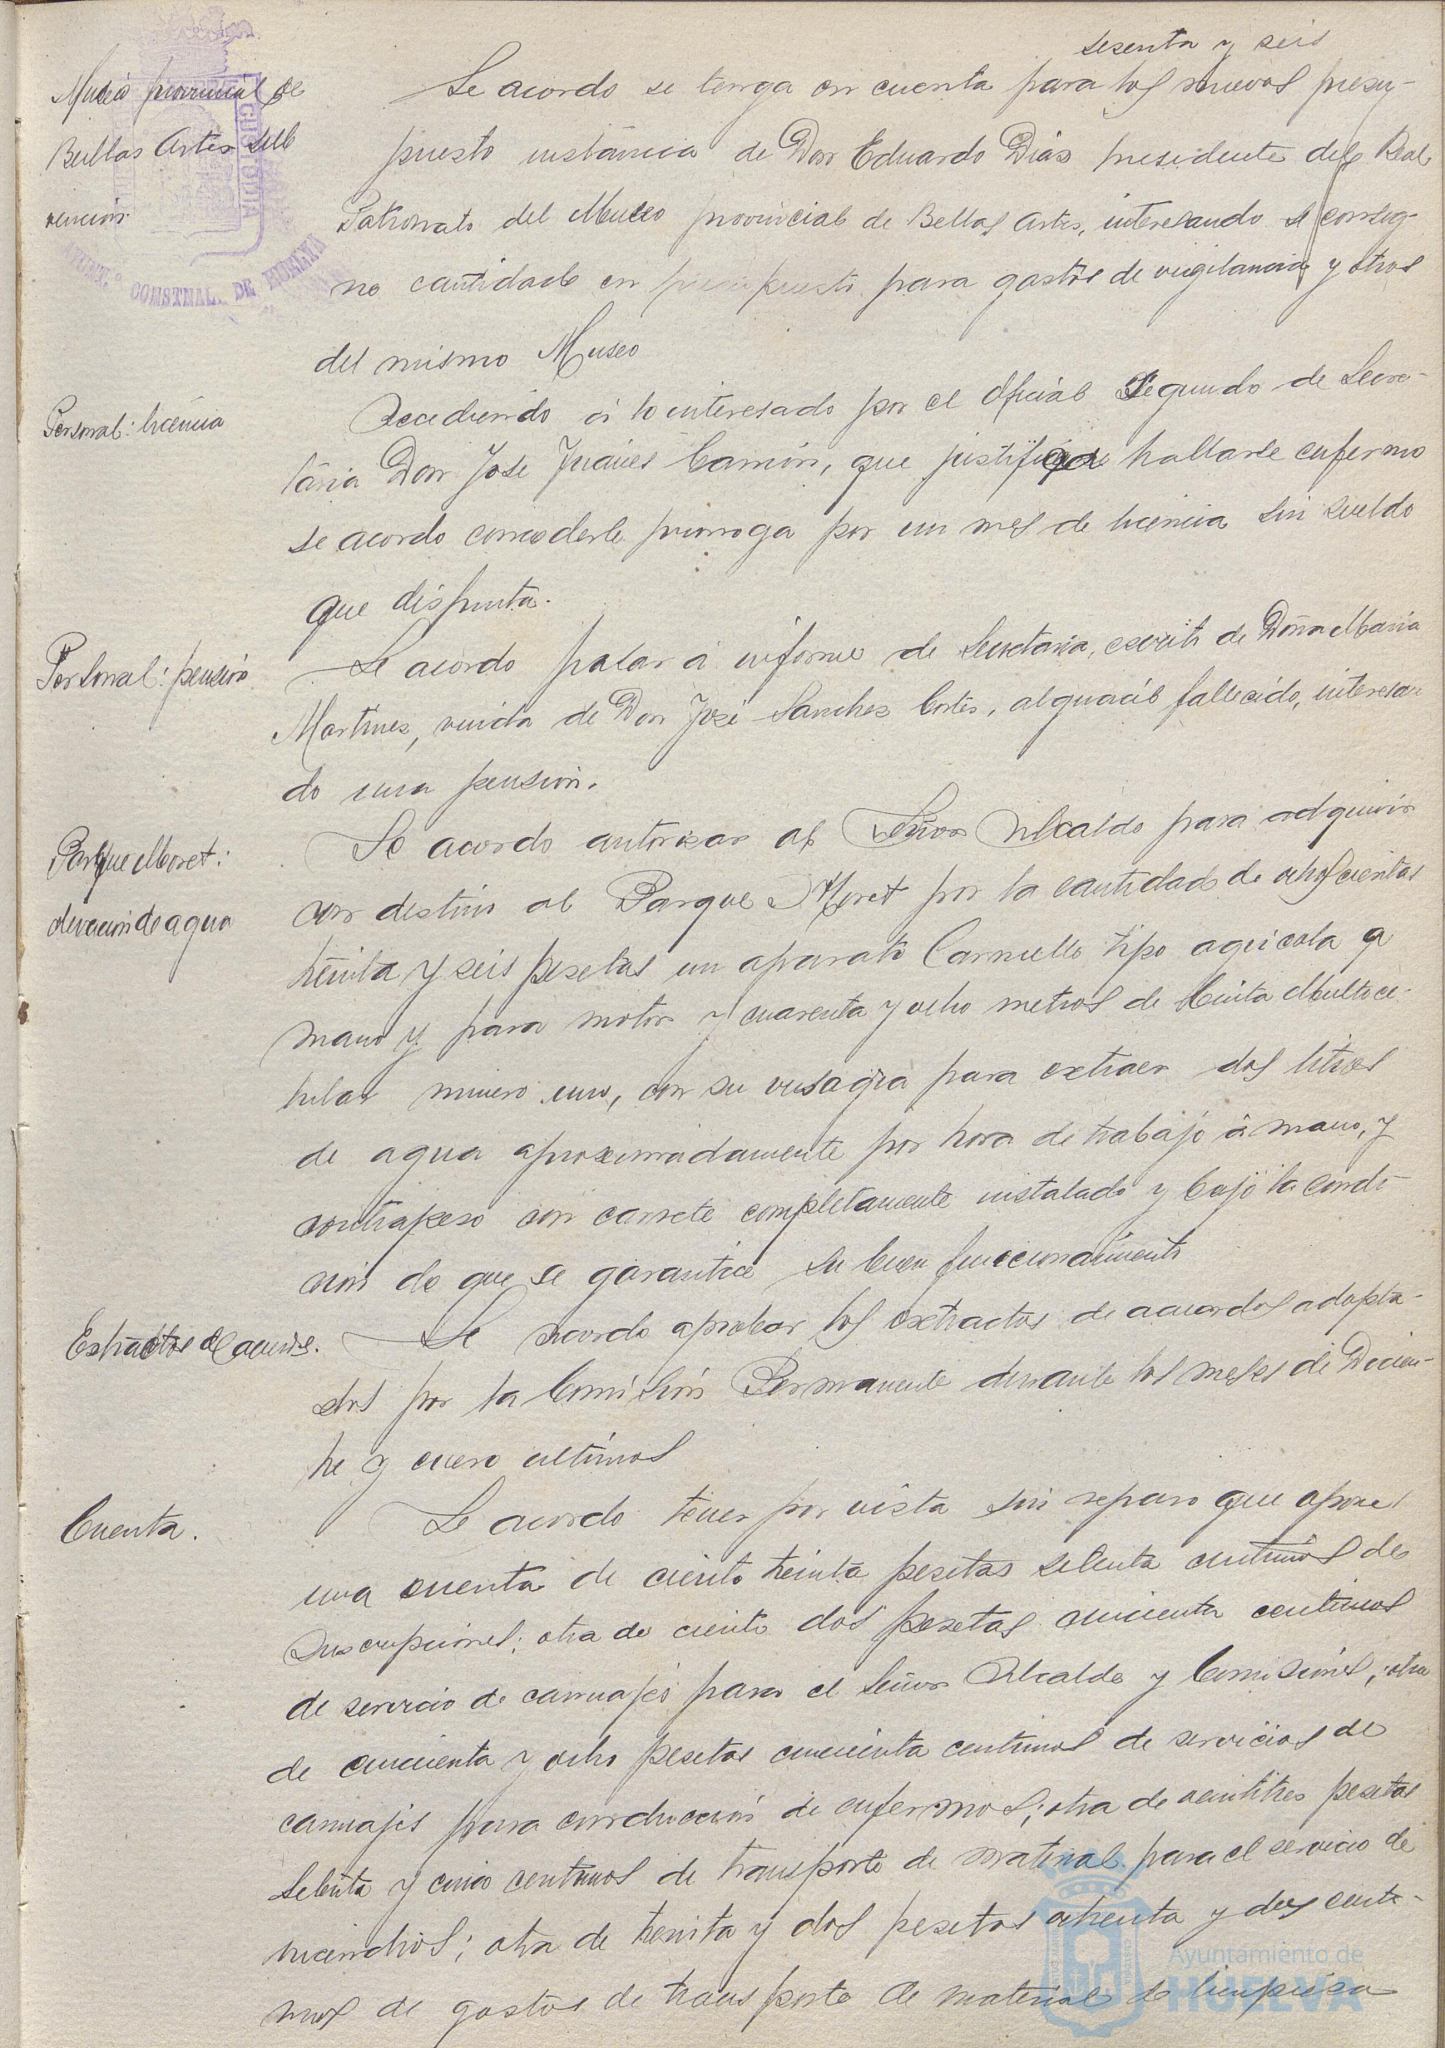 sesenta y seis
Museo provincial de
Bellas Artes sub
vención
Se acordo se tenga en cuenta para los nuevos presu-
puesto instancia de Don Eduardo Dias presidente del Real
Patronato del Museo provincial de Bellas Artes, interesando se consig-
ne cantidad en presupuesto para gastos de vigilancia y otros
del mismo Museo
Personal: licencia
Accediendo á lo interesado por el Oficial Segundo de Secre-
taria Don Jose Juares Camión, que justifica hallarse enfermo
se acordo concederle prorroga por un mes de licencia sin sueldo
que disfruta.
Personal: pensión
Se acordo pasar á informe de Secretaria, escrito de Doña Maria
Martines, viuda de Don José Sanches Cortés, alguacil fallecido, interesan
do una pensión.
Parque Moret:
elevación de agua
Se acordo autorisar al Señor Alcalde para adquirir
con destino al Parque Moret por la cantidad de ochocientas
treinta y seis pesetas un aparato Carnuello tipo agricola a
mano y para motor y cuarenta y ocho metros de Cinta Multoce-
lular numero uno, con su visagra para extraer dos litros
de agua aproximadamente por hora de trabajo á mano, y
contrapeso con carrete completamente instalado y bajo la condi-
ción de que se garantice su buen funcionamiento
Extractos de acuerdos.
Se acordo aprobar los extractos de acuerdos adopta-
dos por la Comisión Permanente durante los meses de Diciem-
bre y enero ultimos
Cuenta.
Se acordo tener por vista sin reparo que oponer
una cuenta de ciento treinta pesetas setenta centimos de
suscripciones; otra de ciento dos pesetas cincuenta centimos
de servicio de carruajes para el Señor Alcalde y Comisiones; otra
de cincuenta y ocho pesetas cincuenta centimos de servicios de
carruajes para conducción de enfermos; otra de veintitres pesetas
setenta y cinco centimos de transporte de material para el servicio de
incendios; otra de treinta y dos pesetas ochenta y dos centi-
mos de gastos de transporte de material de limpiesa
AYUNT.º CONSTNAL. DE HUELVA
CUSTODIA
Ayuntamiento de
HUELVA